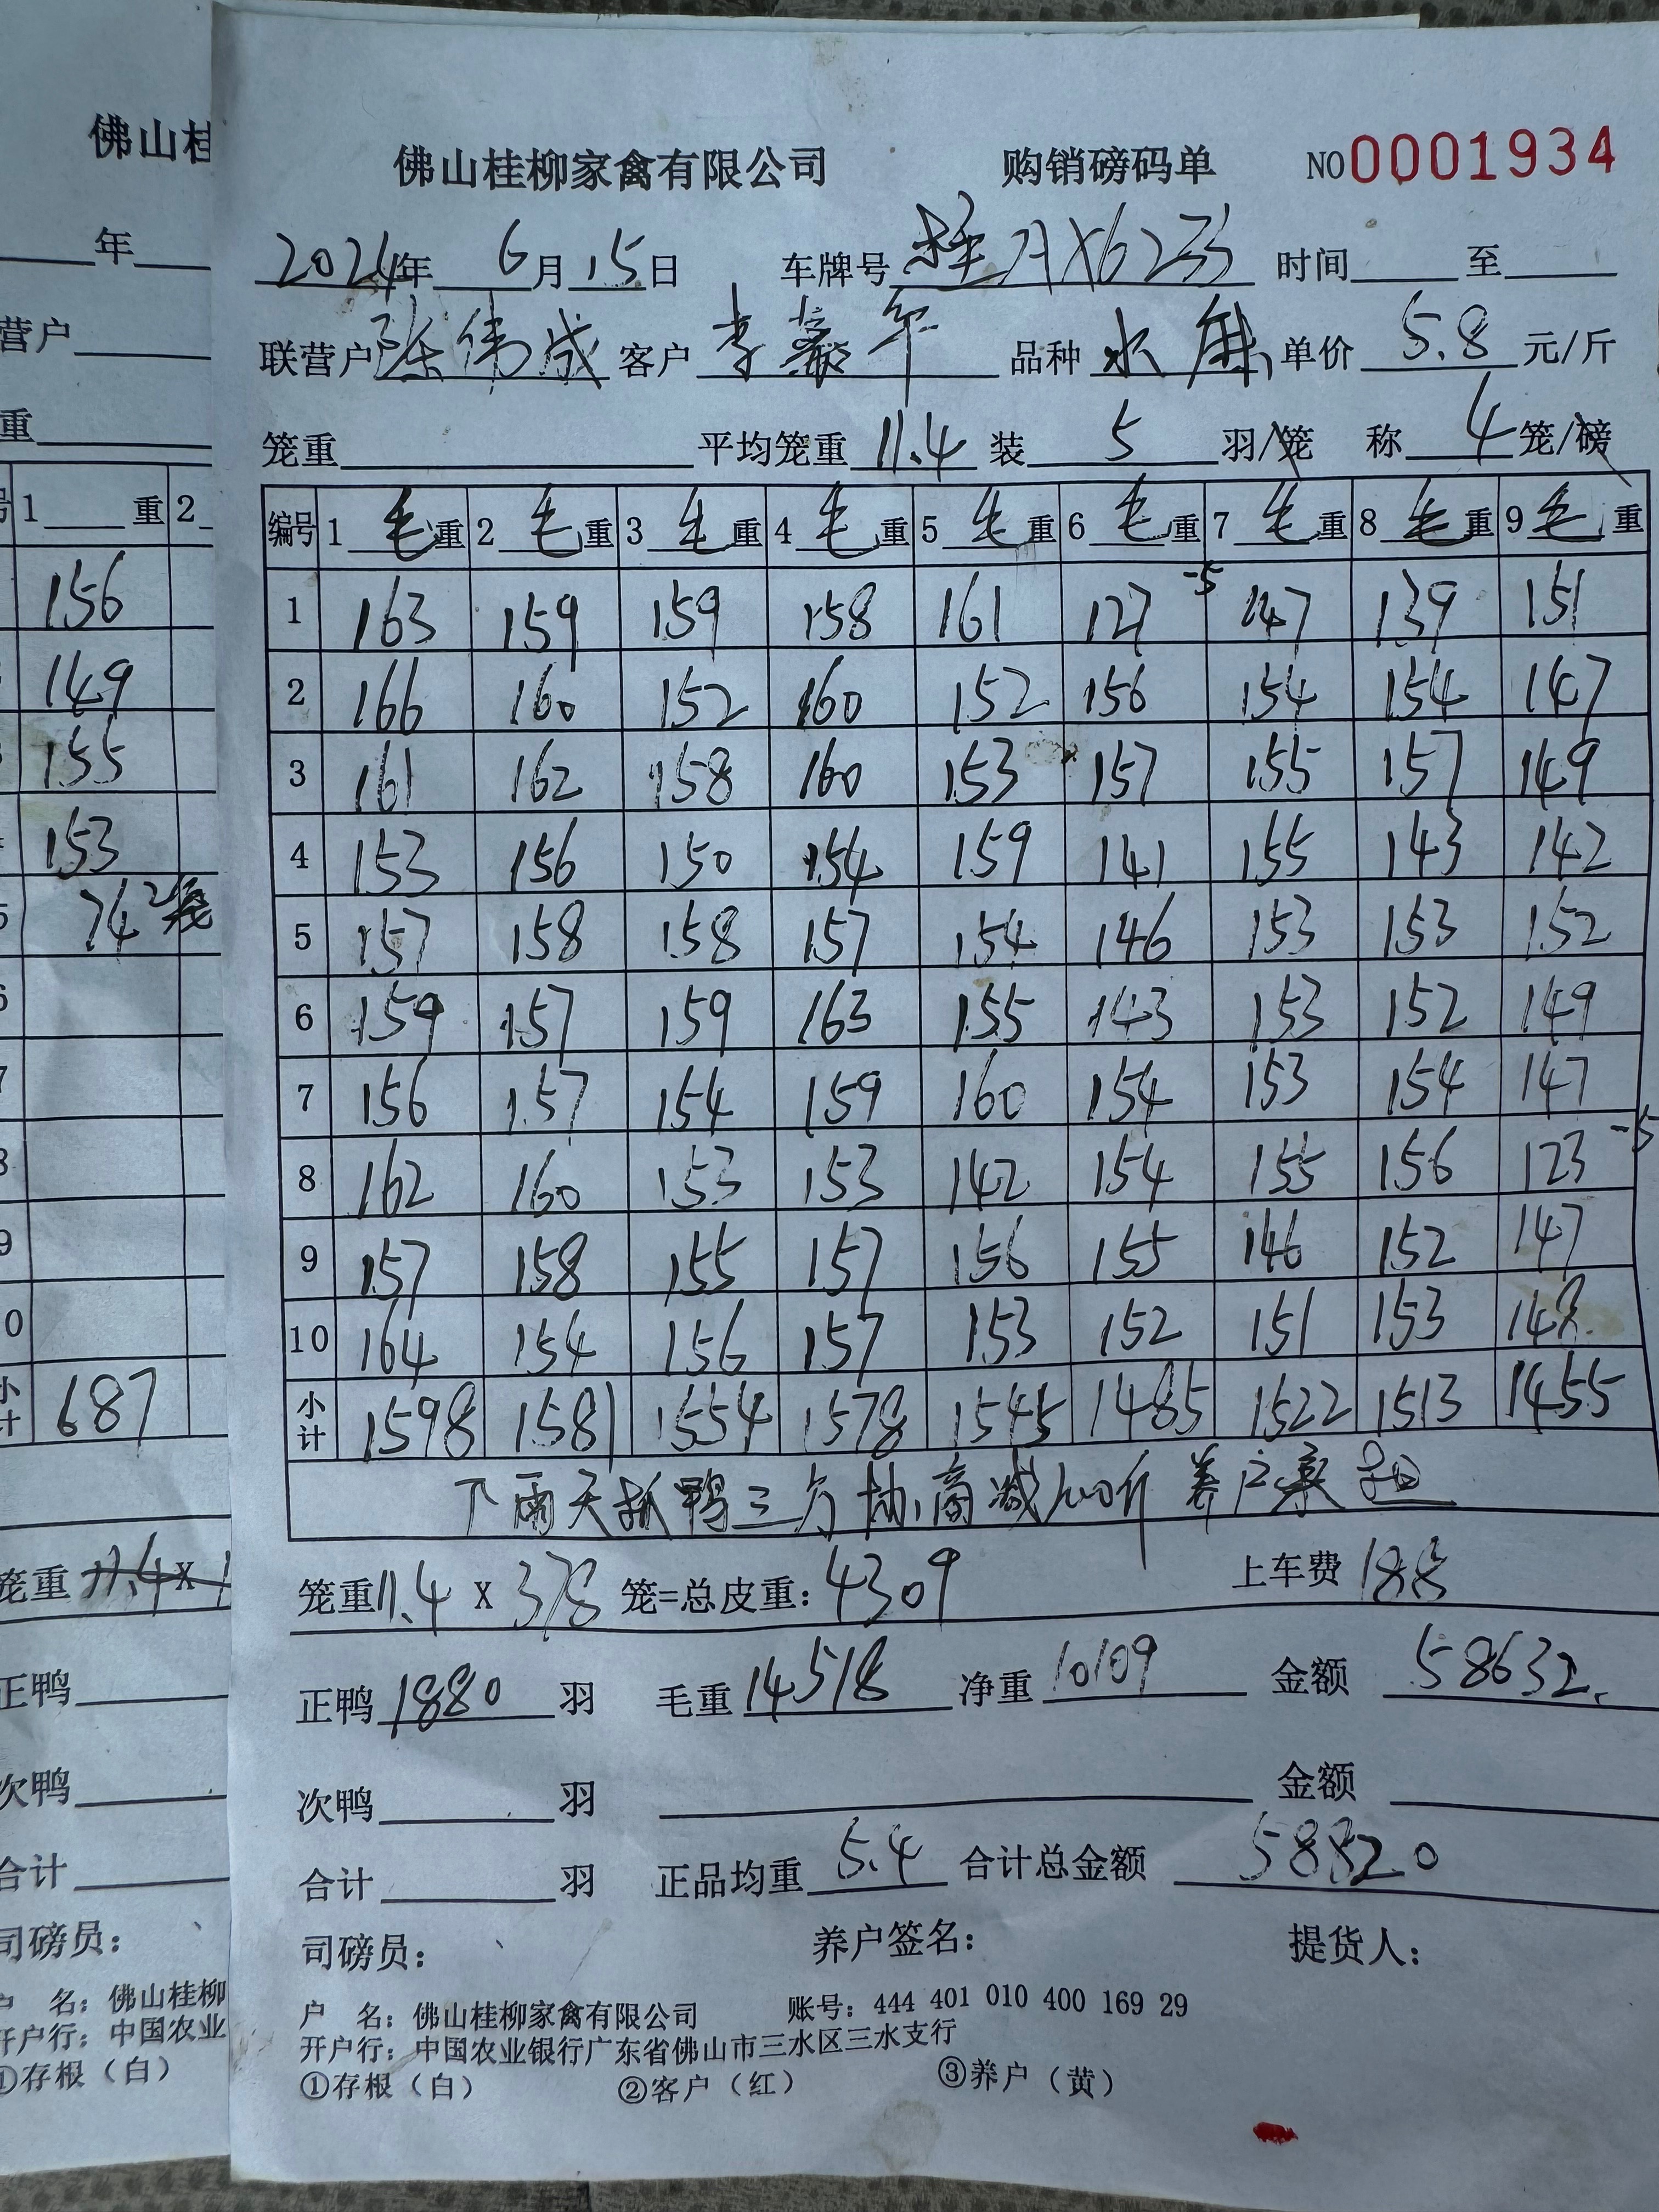 佛山桂柳家禽有限公司 购销磅码单 NO0001934
2024年 6月15日 车牌号桂 X6233 时间 至
联营户陈伟成 客户李 平 品种水麻 单价5.8元/斤
笼重 平均笼重11.4 装5羽/笼 称4笼/磅
编号 1毛重 2毛重 3毛重 4毛重 5毛重 6毛重 7毛重 8毛重 9毛重
1 163 159 159 158 161 127 -5 147 139 151
2 166 160 152 160 152 156 154 154 147
3 161 162 158 160 153 157 155 157 149
4 153 156 150 154 159 141 155 143 142
5 157 158 158 157 154 146 153 153 152
6 159 157 159 163 155 143 153 152 149
7 156 157 154 159 160 154 153 154 147
8 162 160 153 153 142 154 155 156 123 -5
9 157 158 155 157 156 155 146 152 147
10 164 154 156 157 153 152 151 153 148
小计 1598 1581 1554 1578 1545 1485 1522 1513 1455
下雨天抓鸭三方协商减100斤养户承担
笼重11.4 X 378 笼=总皮重：4309 上车费188
正鸭1880羽 毛重14518 净重10109 金额58632.
次鸭 羽 金额
合计 羽 正品均重5.4 合计总金额58820
司磅员： 养户签名： 提货人：
户 名：佛山桂柳家禽有限公司 账号：444 401 010 400 169 29
开户行：中国农业银行广东省佛山市三水区三水支行
①存根（白） ②客户（红） ③养户（黄）
佛山桂
年
营户
重
号 1 重 2
156
149
155
153
74 2笼
小计 687
笼重 11.4 X 1
正鸭
次鸭
合计
司磅员：
户 名：佛山桂柳
开户行：中国农业
①存根（白）